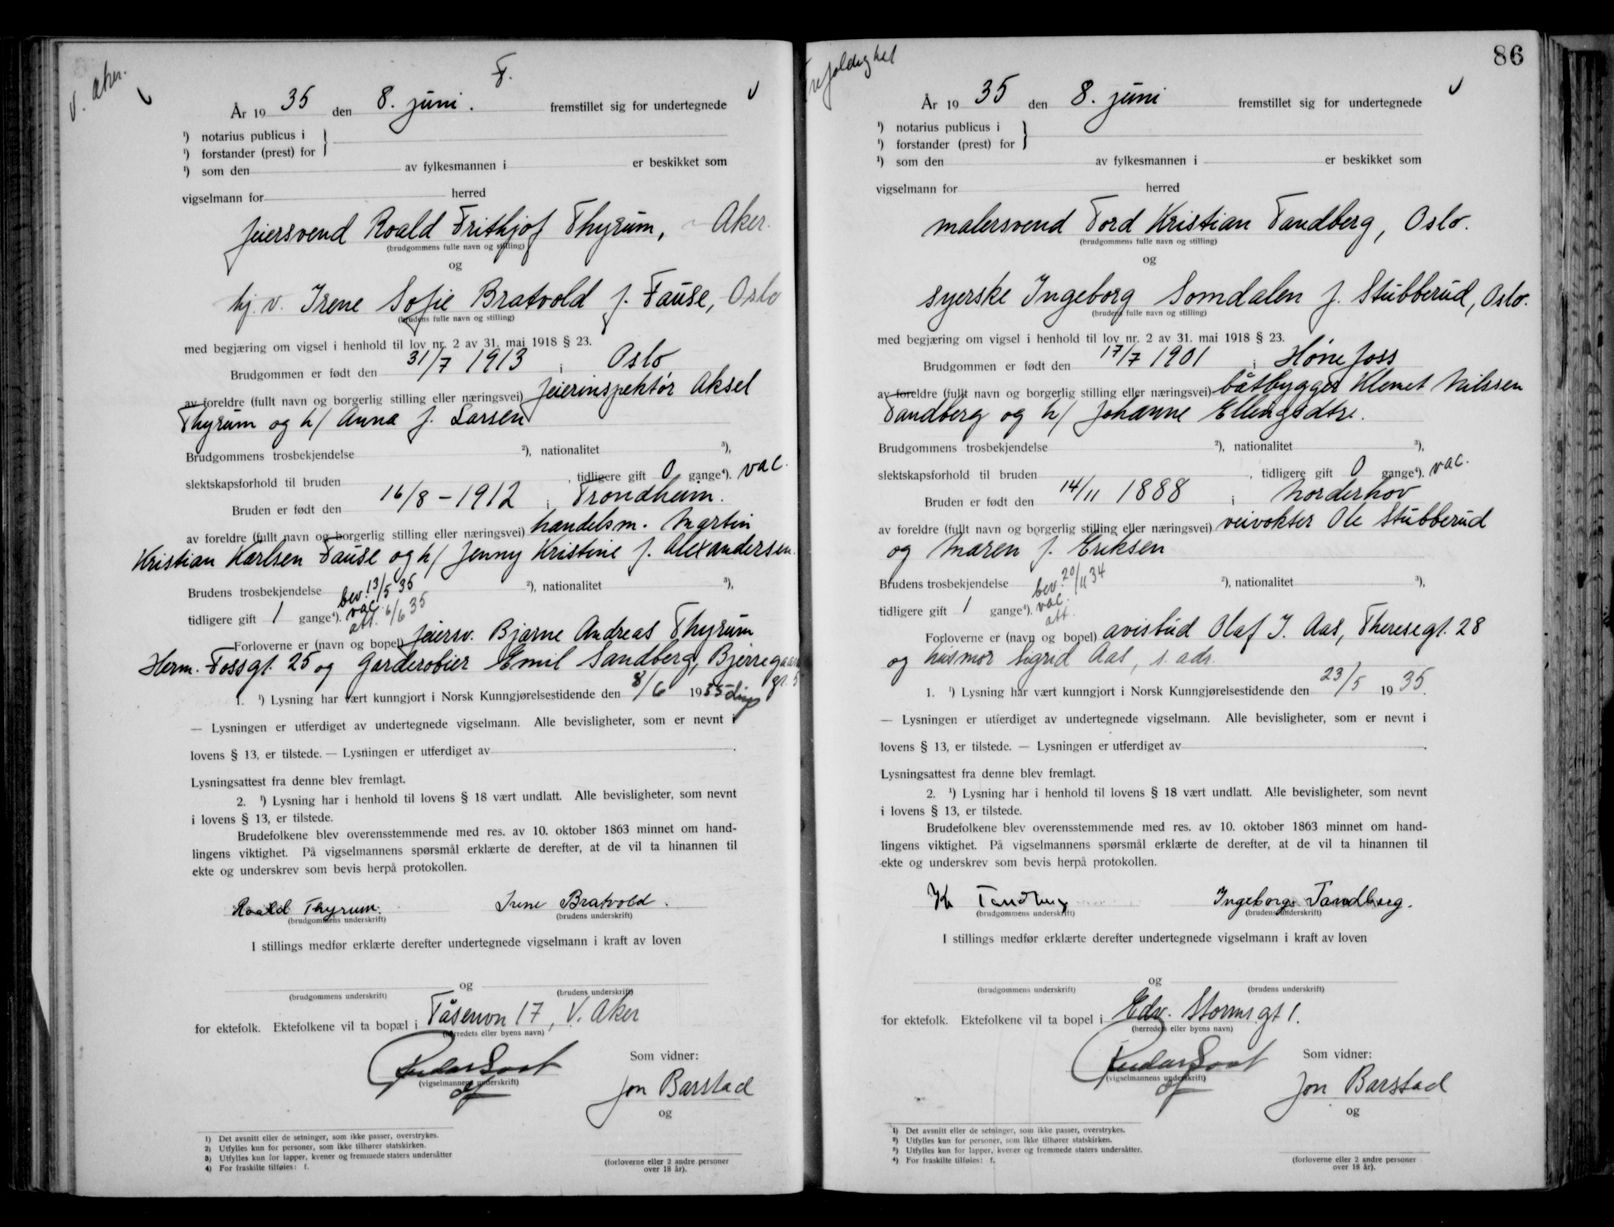 V. Aker.
F.
År 19 35 den 8. juni. fremstillet sig for undertegnede
¹) notarius publicus i
¹) forstander (prest) for
¹) som den av fylkesmannen i er beskikket som
vigselmann for herred
feiersvend Roald Frithjof Thyrum, Aker.
(brudgommens fulle navn og stilling)
og
hj. v. Irene Sofie Bratvold f. Fause, Oslo
(brudens fulle navn og stilling)
med begjæring om vigsel i henhold til lov nr. 2 av 31. mai 1918 § 23.
Brudgommen er født den 31/7 1913 i Oslo
av foreldre (fullt navn og borgerlig stilling eller næringsvei) feierinspektør Aksel
Thyrum og h/ Anna f. Larsen
Brudgommens trosbekjendelse ²), nationalitet ³),
slektskapsforhold til bruden , tidligere gift 0 gange⁴). vac.
Bruden er født den 16/8 - 1912 i Trondheim.
av foreldre (fullt navn og borgerlig stilling eller næringsvei) handelsm. Martin
Kristian Karlsen Fause og h/ Jenny Kristine f. Alexandersen.
Brudens trosbekjendelse bev. 13/5 35 ²), nationalitet ³),
tidligere gift 1 gange⁴). vac. att. 6/6 35
Forloverne er (navn og bopel) feiersv. Bjarne Andreas Thyrum
Herm. Fossgt. 25 og Garderobier Emil Sandberg, Bjerregaards gt. 5
1. ¹) Lysning har vært kunngjort i Norsk Kunngjørelsestidende den 8/6 1935
— Lysningen er utferdiget av undertegnede vigselmann. Alle bevisligheter, som er nevnt i
lovens § 13, er tilstede. — Lysningen er utferdiget av
Lysningsattest fra denne blev fremlagt.
2. ¹) Lysning har i henhold til lovens § 18 vært undlatt. Alle bevisligheter, som nevnt
i lovens § 13, er tilstede.
Brudefolkene blev overensstemmende med res. av 10. oktober 1863 minnet om hand-
lingens viktighet. På vigselmannens spørsmål erklærte de derefter, at de vil ta hinannen til
ekte og underskrev som bevis herpå protokollen.
Roald Thyrum. Irene Bratvold.
(brudgommens underskrift) (brudens underskrift)
I stillings medfør erklærte derefter undertegnede vigselmann i kraft av loven
og
(brudgommens underskrift) (brudens underskrift)
for ektefolk. Ektefolkene vil ta bopæl i Tåsenvn 17, V. Aker
(herredets eller byens navn)
Som vidner:
(vigselmannens underskrift)
Jon Barstad
og
1) Det avsnitt eller de setninger, som ikke passer, overstrykes.
2) Utfylles kun for personer, som ikke tilhører statskirken.
3) Utfylles kun for lapper, kvener og fremmede staters undersåtter
4) For fraskilte tilføies: f.
(forloverne eller 2 andre personer
over 18 år).
86
År 19 35 den 8. juni fremstillet sig for undertegnede
¹) notarius publicus i
¹) forstander (prest) for
¹) som den av fylkesmannen i er beskikket som
vigselmann for herred
malersvend Tord Kristian Tandberg, Oslo.
(brudgommens fulle navn og stilling)
og
syerske Ingeborg Somdalen f. Stubberud, Oslo.
(brudens fulle navn og stilling)
med begjæring om vigsel i henhold til lov nr. 2 av 31. mai 1918 § 23.
Brudgommen er født den 17/7 1901 i Hønefoss
av foreldre (fullt navn og borgerlig stilling eller næringsvei) båtbygger Klemet Nilssen
Tandberg og h/ Johanne Ellingsdtr.
Brudgommens trosbekjendelse ²), nationalitet ³),
slektskapsforhold til bruden , tidligere gift 0 gange⁴). vac.
Bruden er født den 14/11 1888 i Norderhov
av foreldre (fullt navn og borgerlig stilling eller næringsvei) veivokter Ole Stubberud
og Maren f. Eriksen
Brudens trosbekjendelse bev. 20/11 34 ²), nationalitet ³),
tidligere gift 1 gange⁴). vac. att
Forloverne er (navn og bopel) avisbud Olaf J. Aas, Theresegt. 28
og husmor Sigrid Aas, s. adr.
1. ¹) Lysning har vært kunngjort i Norsk Kunngjørelsestidende den 23/5 1935.
— Lysningen er utferdiget av undertegnede vigselmann. Alle bevisligheter, som er nevnt i
lovens § 13, er tilstede. — Lysningen er utferdiget av
Lysningsattest fra denne blev fremlagt.
2. ¹) Lysning har i henhold til lovens § 18 vært undlatt. Alle bevisligheter, som nevnt
i lovens § 13, er tilstede.
Brudefolkene blev overensstemmende med res. av 10. oktober 1863 minnet om hand-
lingens viktighet. På vigselmannens spørsmål erklærte de derefter, at de vil ta hinannen til
ekte og underskrev som bevis herpå protokollen.
Kr Tandberg Ingeborg Tandberg.
(brudgommens underskrift) (brudens underskrift)
I stillings medfør erklærte derefter undertegnede vigselmann i kraft av loven
og
(brudgommens underskrift) (brudens underskrift)
for ektefolk. Ektefolkene vil ta bopel i Edv. Storms gt 1.
(herredets eller byens navn)
Som vidner:
(vigselmannens underskrift)
Jon Barstad
og
1) Det avsnitt eller de setninger, som ikke passer, overstrykes.
²) Utfylles kun for personer, som ikke tilhører statskirken.
³) Utfylles kun for lapper, kvener og fremmede staters undersåtter.
⁴) For fraskilte tilføies: f.
(forloverne eller 2 andre personer
over 18 år).